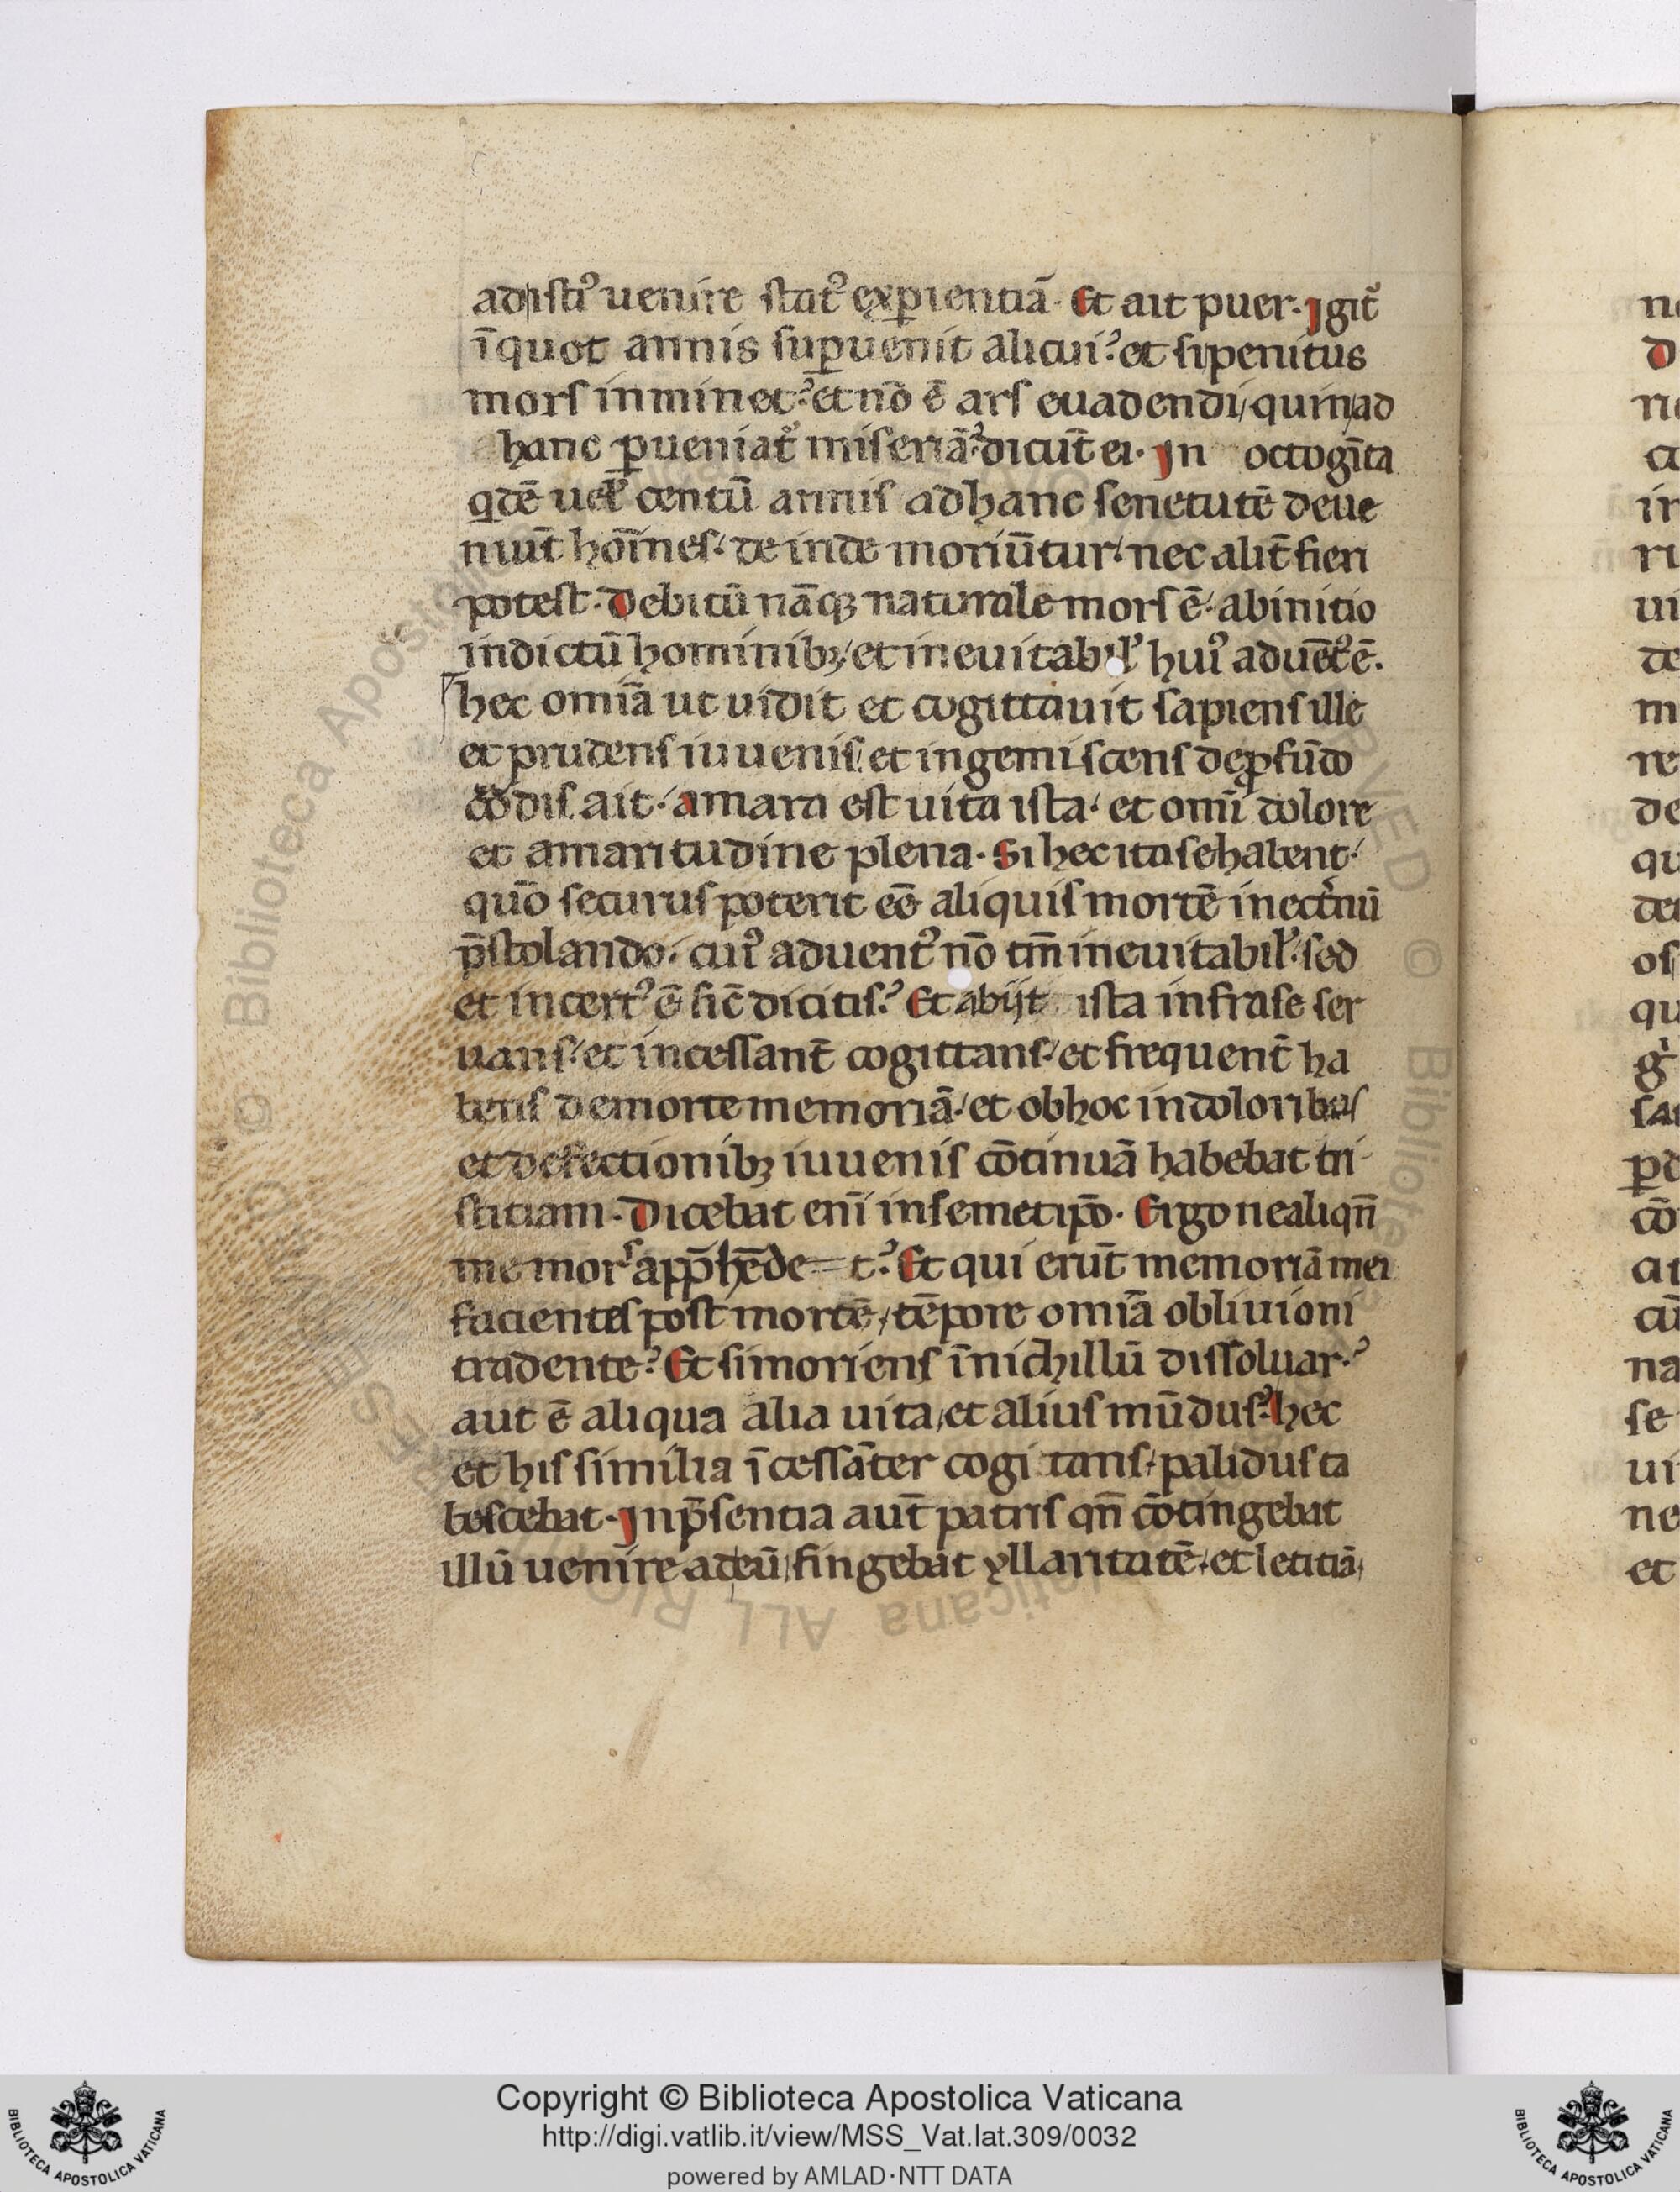 adisti᷒ uenire stat᷒ exꝑientiā. Et ait puer. Igit᷒
ī quot annis suꝑuenit alicui? et si penitus
mors inminet? et nō ē ars euadendi, quin ad
hanc ꝑueniat᷒ miseriā? dicūt ei. In octogīta
qdē uel centū annis ad hanc senetutē deue
niūt hoīnes. deinde moriūtur. nec alit̄ fieri
potest. Debitū nāqꝫ naturale mors ē. ab initio
indictū hominibꝫ, et ineuitabil᷒ hui᷒ aduēt᷒ ē.
hec omīa ut uidit et cogittauit sapiens ille
et prudens iuuenis et ingemiscens de ꝓfūdo
cordis ait. amara est uita ista. et omī dolore
et amaritudine plena. Si hec ita se habent.
quō securus poterit eē aliquis mortē in ect̓nū
p̄stolando. cui᷒ aduent᷒ nō tm̄ ineuitabil᷒. sed
et incert᷒ ē sic̄ dicitis? Et abijt ista infra se ser
uans. et incessant̄ cogittans. et frequent̄ ha
bens de morte memoriā. et ob hoc in doloribus
et defectionibꝫ iuuenis cōtinuā habebat tri
stitiam. Dicebat enī in semetip̄o. Ergo ne aliqn̄
me mors app̄hēde=t? Et qui erūt memoriā mei
facientes post mortē, tēpore omīa obliuioni
tradente? Et si moriens ī nichillū dissoluar?
aut ē aliqua alia uita, et alius mūdus? hec
et his similia īcessāter cogitans, palidus ta
bescebat. In p̄sentia aut̄ patris qn̄ cōtingebat
illū uenire ad eū, fingebat yllaritatē, et letitiā,
Copyright © Biblioteca Apostolica Vaticana
http://digi.vatlib.it/view/MSS_Vat.lat.309/0032
powered by AMLAD·NTT DATA
BIBLIOTECA APOSTOLICA VATICANA
BIBLIOTECA APOSTOLICA VATICANA